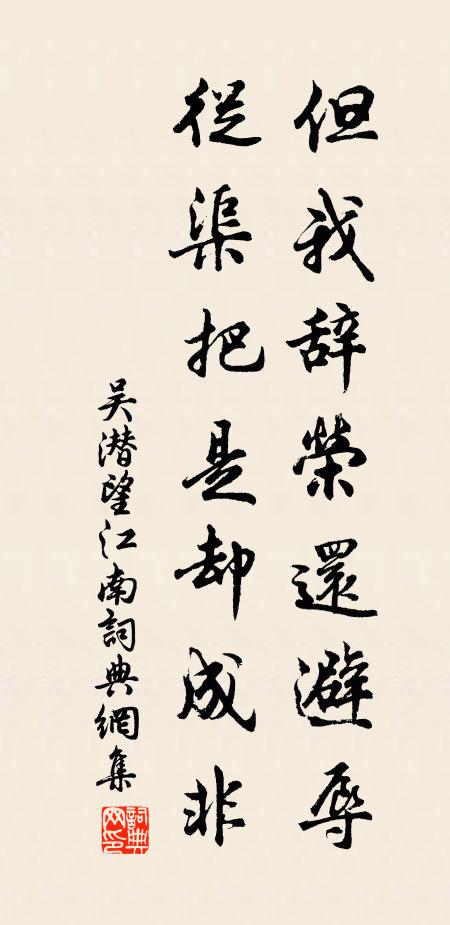 但我辞榮還避辱
從渠把是却成非
吴潜望江南詞典網集
詞典網印